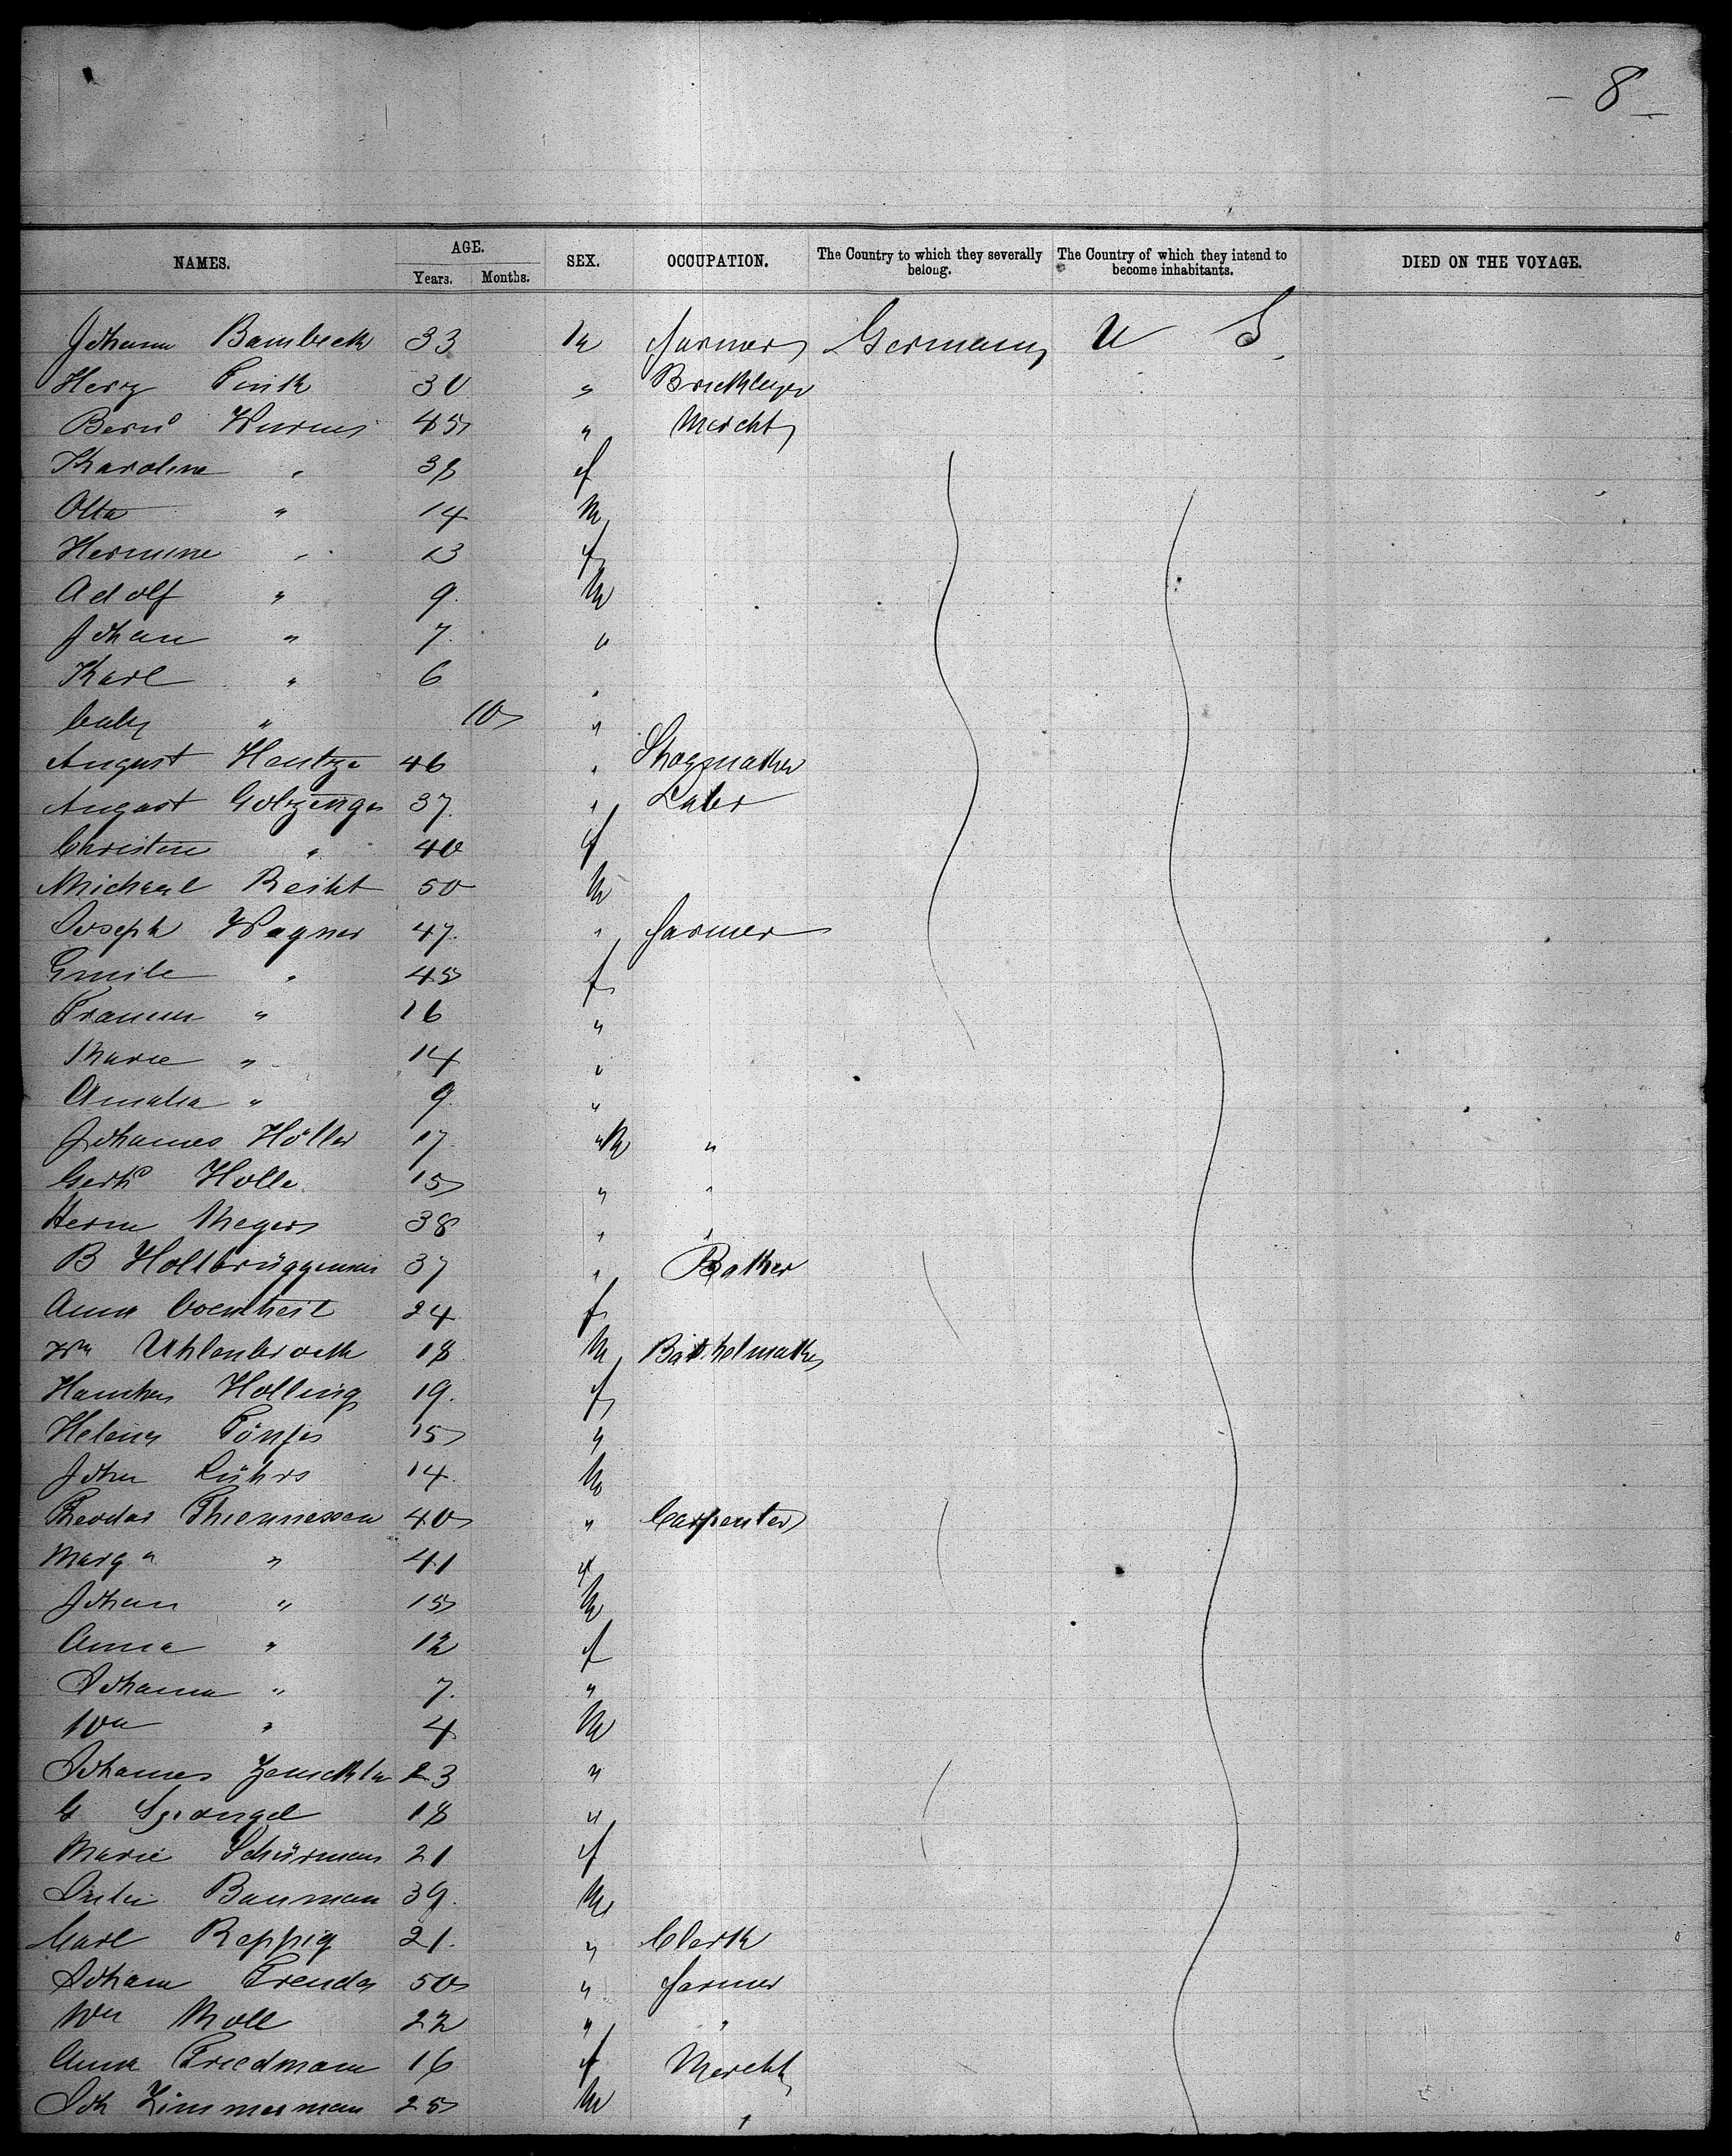 - 8 -
NAMES. AGE. Years. Months. SEX. OCCUPATION. The Country to which they severally belong. The Country of which they intend to become inhabitants. DIED ON THE VOYAGE.
Johann Bambeck 33 M farmer Germany U S.
30 " Bricklayer
45 " Mercht
Karoline " 38 f
Otto " 14 M
Hermine " 13 f
Adolf " 9 M
Johan " 7 "
Karl " 6 "
baby " 10 "
August Hentze 46 "
August 37 " Labr
Christine " 40 f
Michael 50 M
Joseph Wagner 47 " farmer
Emile " 45 f
" 16 "
Marie " 14 "
Amalia " 9 "
Johannes Höller 17 M "
Gerhd Holle 15 " "
Herm Meyers 38 " "
B 37 " Baker
Anna 24 f
Wm Uhlenbrock 18 M
Holling 19 f
Helena Tönjes 15 "
John Lührs 14 M
Theodor Thiennessen 40 " Carpenter
Marga " 41 f
Johan " 15 M
Anna " 12 f
Johanna " 7 "
Wm " 4 M
Johannes 23 "
G 18 "
Marie Schürman 21 f
Bauman 39 M
Carl Reppig 21 " Clerk
Johann 50 " farmer
Wm Moll 22 " "
Anna Friedmann 16 f Mercht
Joh Zimmerman 25 M "